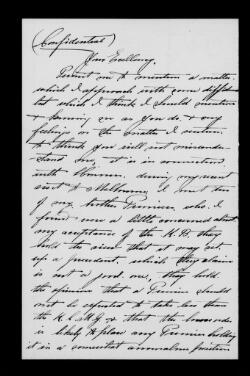 (Confidential)
Your Excellency,
Permit me to mention a matter
which I approach with some diffid
but which I think I should mention
& knowing as you do, & my
feelings on the matter I venture
to think you will not misunder-
stand me, it is in connection
with Honours. during my recent
visit to Melbourne I met two
of my brother Premiers, who, I
found were a little concerned about
my acceptance of the K.B. they
hold the view that it may set
up a precedent, which they claim
is not a good one, they hold
the opinion that a Premier should
not be expected to take less than
the K.C.M.G. & that the lower order
is likely to place any Premier holding
it in a somewhat anomalous position